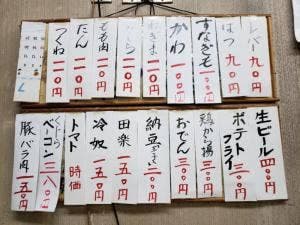 レバー 九〇円
はつ 九〇円
すなぎも 一〇〇円
かわ 一〇〇円
ねぎま 一一〇円
もも肉 一一〇円
たん 一一〇円
つくね 一一〇円
生ビール 四〇〇円
ポテトフライ 三〇〇円
鶏から揚 三〇〇円
おでん 三〇〇円
納豆 三〇〇円
田楽 一五〇円
冷奴 一五〇円
トマト 時価
くじらベーコン 三八〇円
豚バラ肉 一五〇円